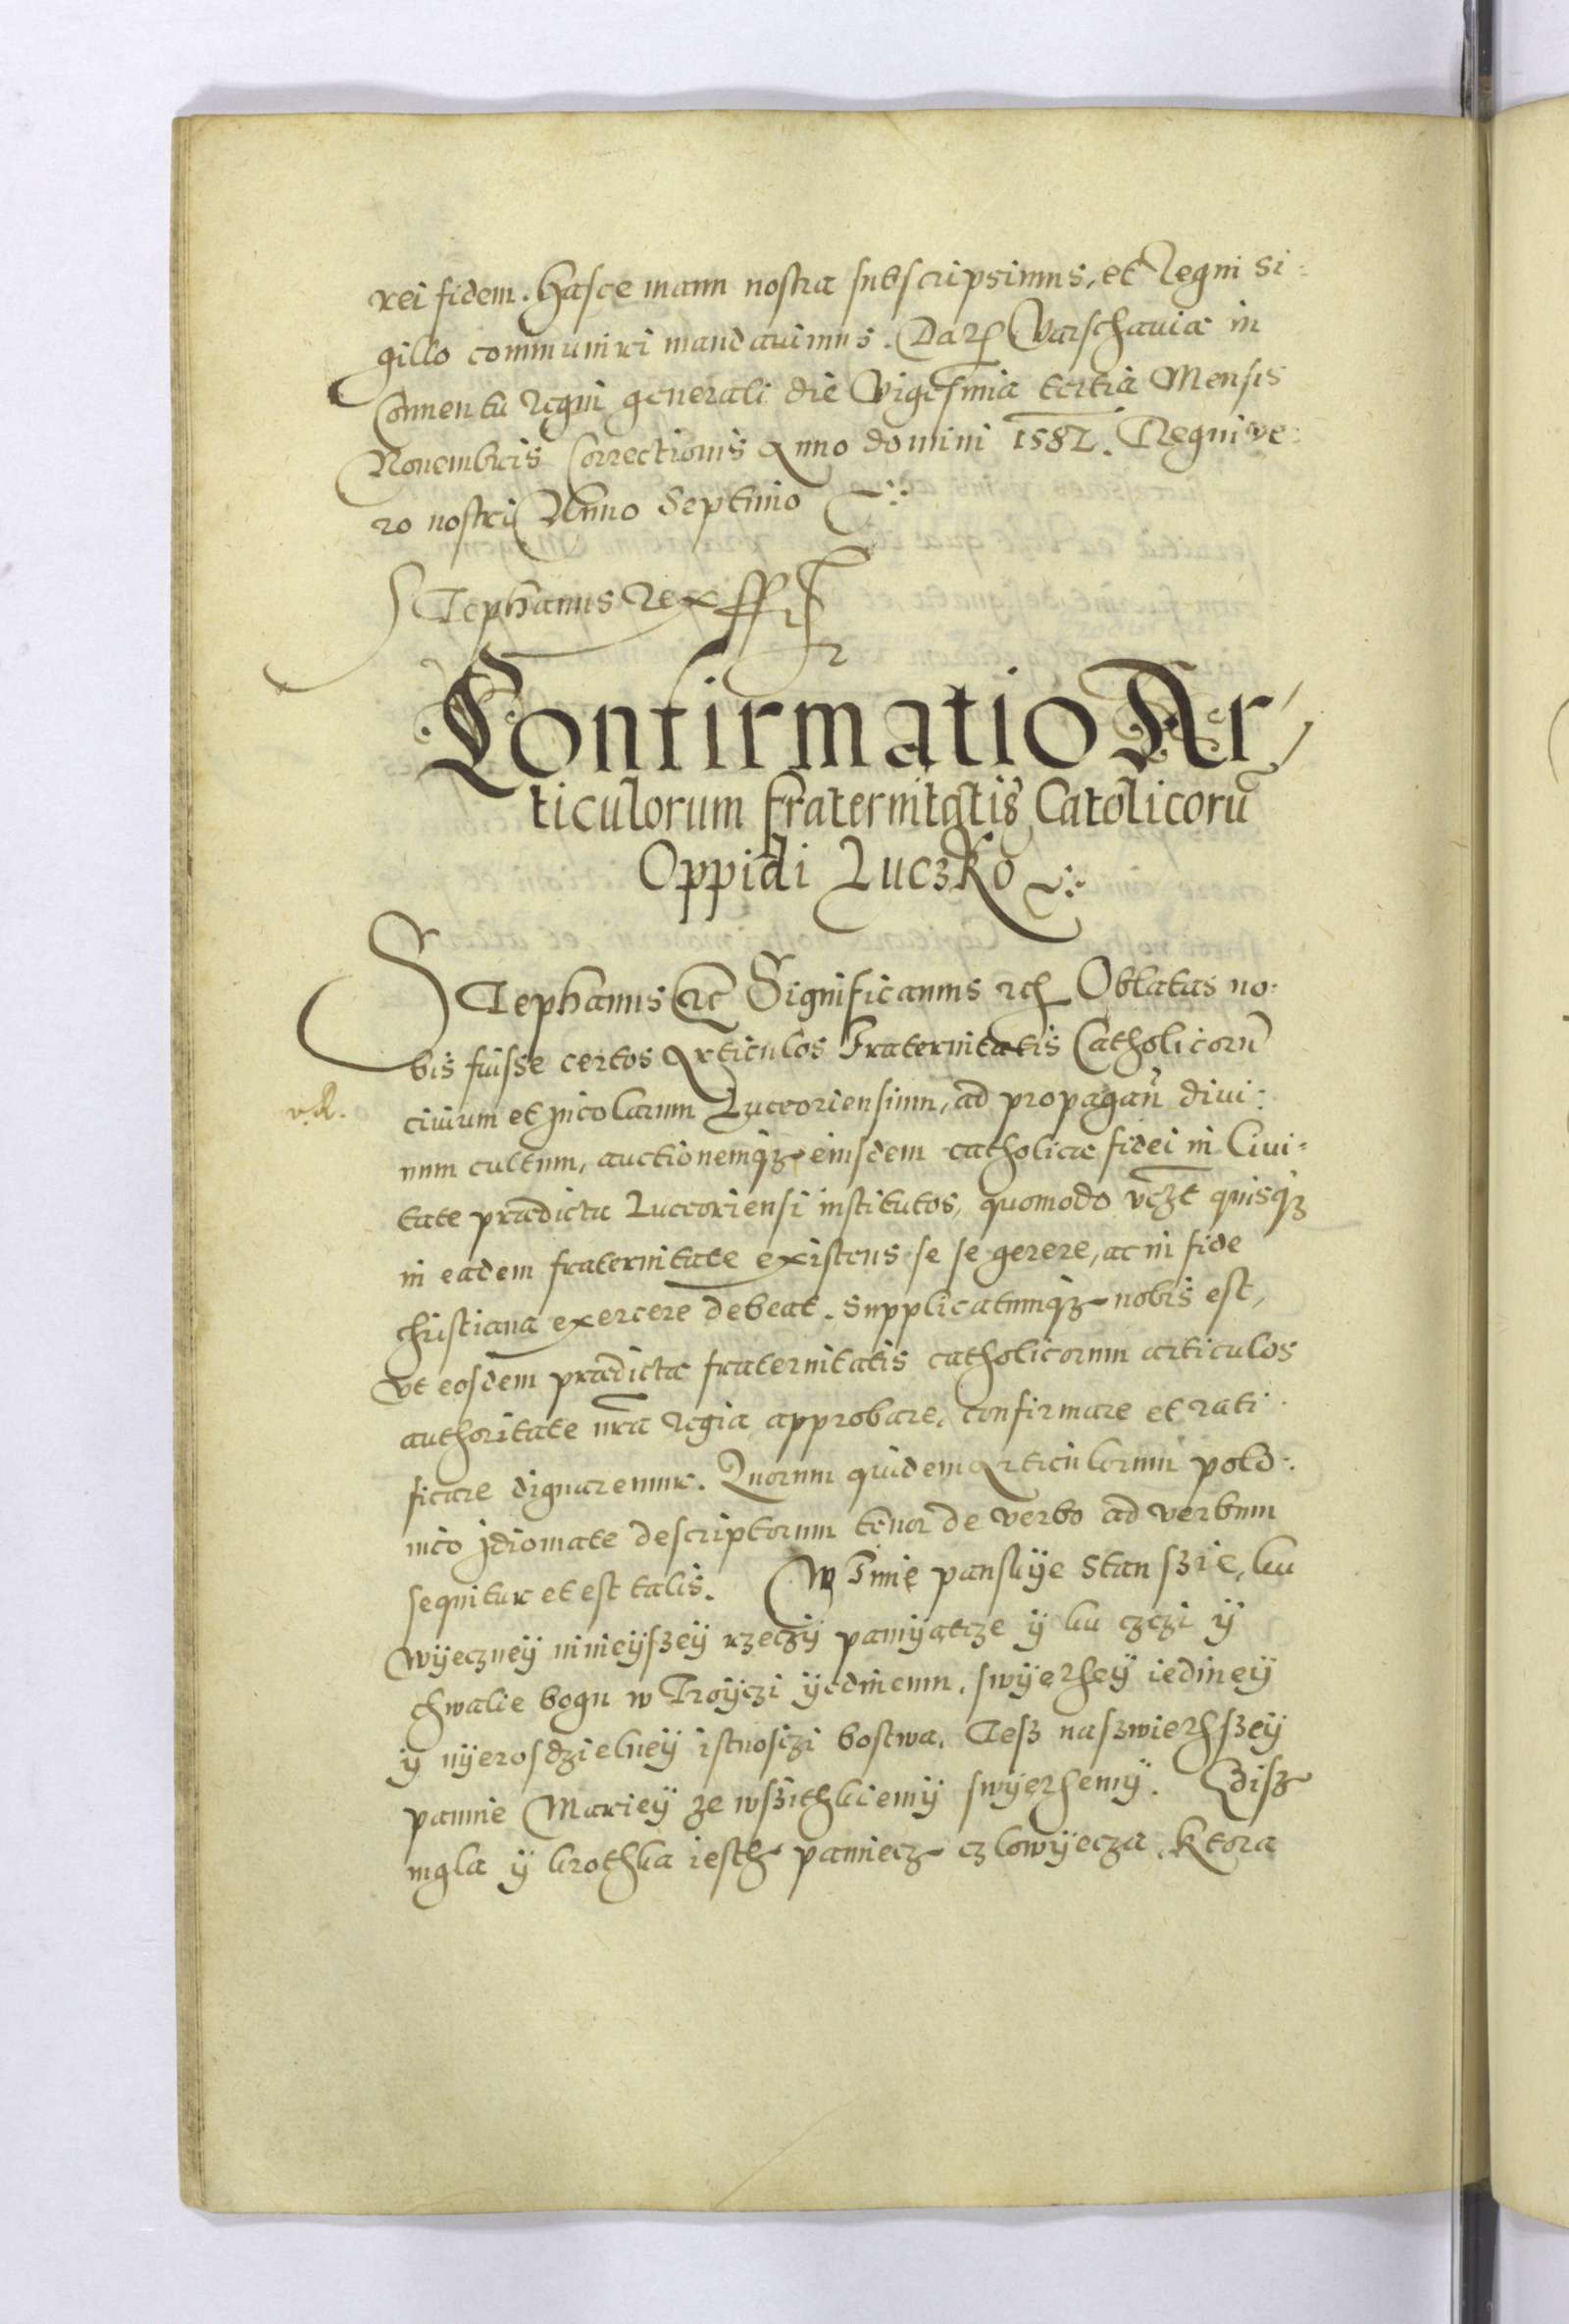 rei fidem. Hasce manu nostra subscripsimus, et Regni si:
gillo communiri mandavimus. Dat Varschaviæ in
Conventu Regni generali die Vigesima tertia Mensis
Novembris Correctionis Anno domini 1582. Regni ve:
ro nostri Anno Septimo
Stephanus Rex
Confirmatio Ar
ticulorum fraternitatis Catolicorũ
Oppidi Luczko
Stephanus etc Significamus etc Oblatas no:
bis fuisse certos Articulos Fraternitatis Catholicorũ
civium et incolarum Luceoriensium, ad propagan divi:
num cultum, auctionemqȝ eiusdem catholicæ fidei in Civi:
tate prædicta Luceoriensi institutos, quomodo vczt quisqȝ
in eadem fraternitate existens se se gerere, ac in fide
christiana exercere debeat. Supplicatumqȝ nobis est,
Vt eosdem prædictæ fraternitatis catholicorum articulos
authoritate nrã regia approbare, confirmare et rati
ficare dignaremur. Quorum quidem Articulorum polo:
nico idiomate descriptorum tenor de verbo ad verbum
sequitur et est talis. W Imię panskÿe stan szię, ku
wÿecznеÿ ninieÿszeÿ rzeczÿ pamÿątcze ÿ ku czczi ÿ
chwalie bogu w Troÿczi ÿedinemu, swÿethеÿ iedineÿ
ÿ nÿerosdzielneÿ istnosczi bostwa. Tesz naszwiethszeÿ
pannie Marieÿ ze wszithkiemÿ swÿethemÿ. Gdisz
mgla ÿ krothka iesth pamiecz czlowÿecza, ktora